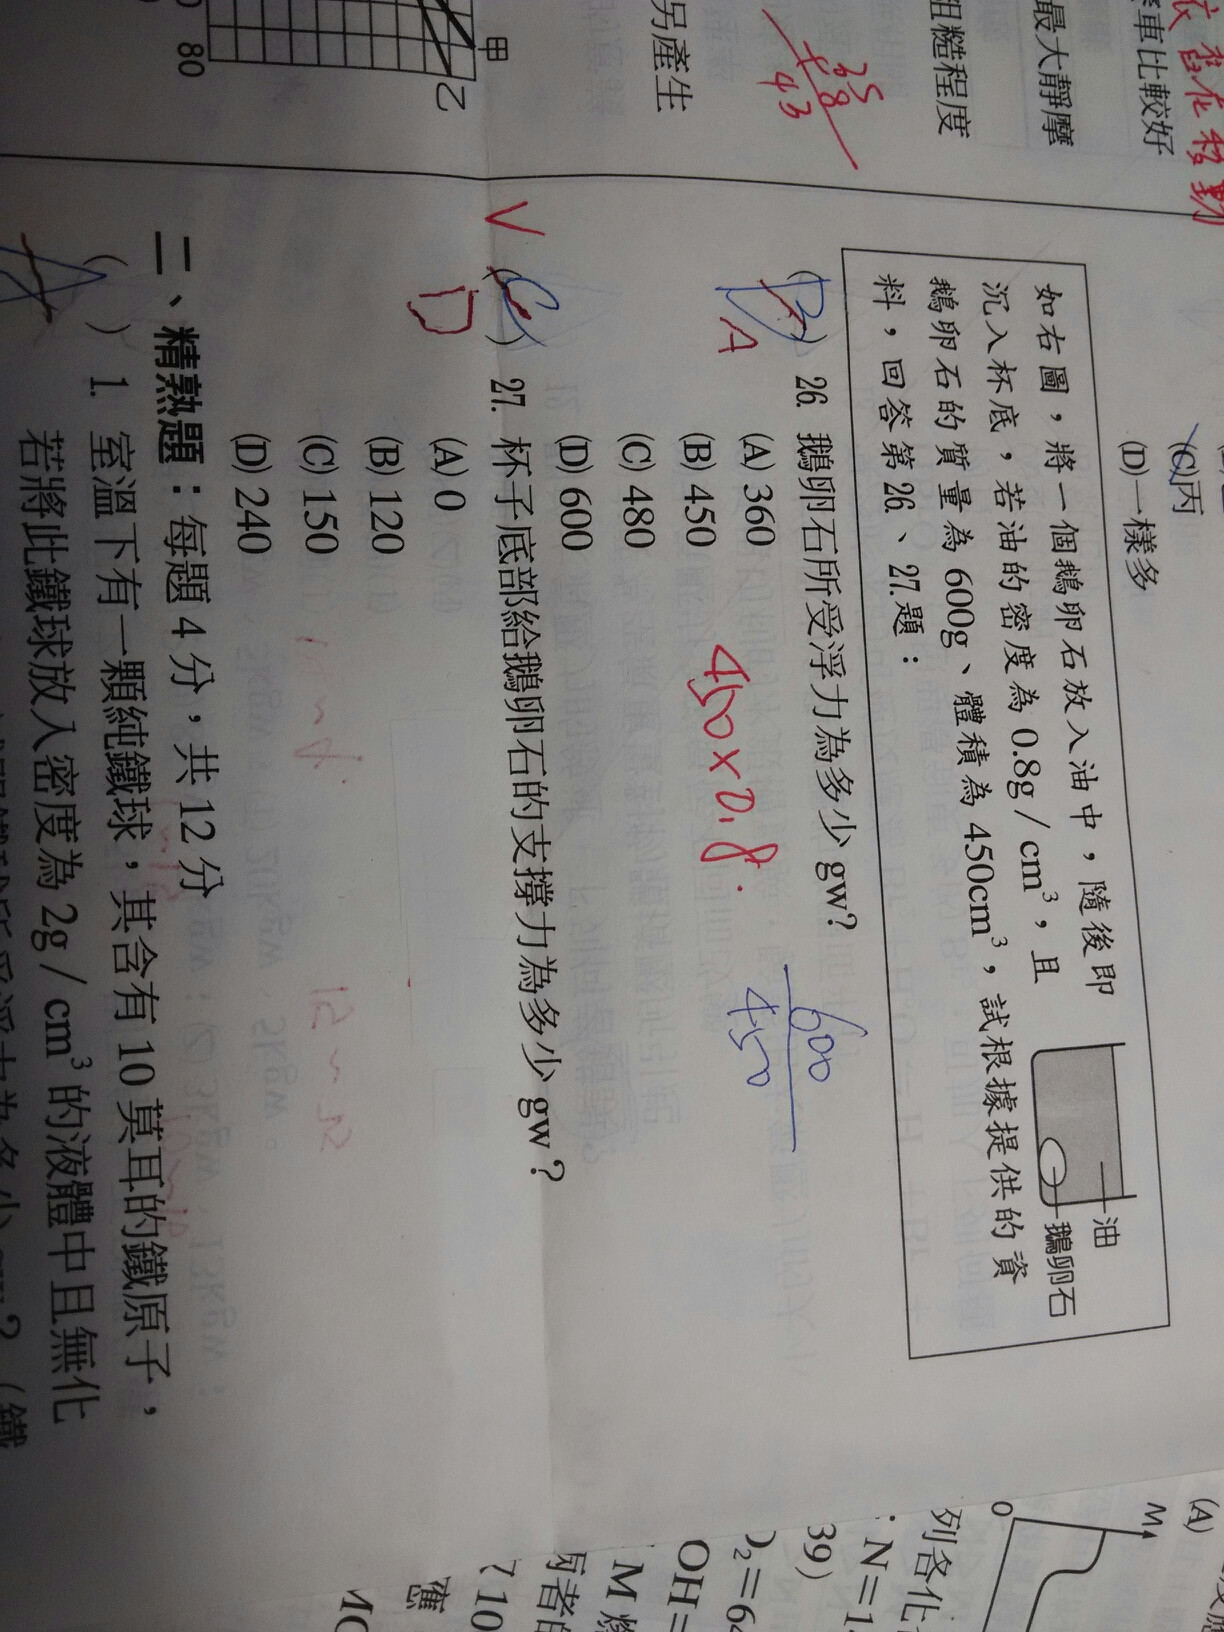 衣
車比較好
最大靜摩
粗糙程度
35
+8
43
另產生
甲
乙
80
(C)丙
(D)一樣多
如右圖，將一個鵝卵石放入油中，隨後即
沉入杯底，若油的密度為 0.8g / cm³，且
鵝卵石的質量為 600g、體積為 450cm³，試根據提供的資
料，回答第 26、27.題：
油
鵝卵石
(B) 26. 鵝卵石所受浮力為多少 gw?
A
(A) 360
(B) 450
(C) 480
(D) 600
450×0.8
600
450
V
(C) 27. 杯子底部給鵝卵石的支撐力為多少 gw？
D
(A) 0
(B) 120
(C) 150
(D) 240
二、精熟題：每題 4 分，共 12 分
( ) 1. 室溫下有一顆純鐵球，其含有 10 莫耳的鐵原子，
A
若將此鐵球放入密度為 2g / cm³ 的液體中且無化
(A)
M
0
列各化
N=1
39)
₂=64
OH=
M 燃
10
應